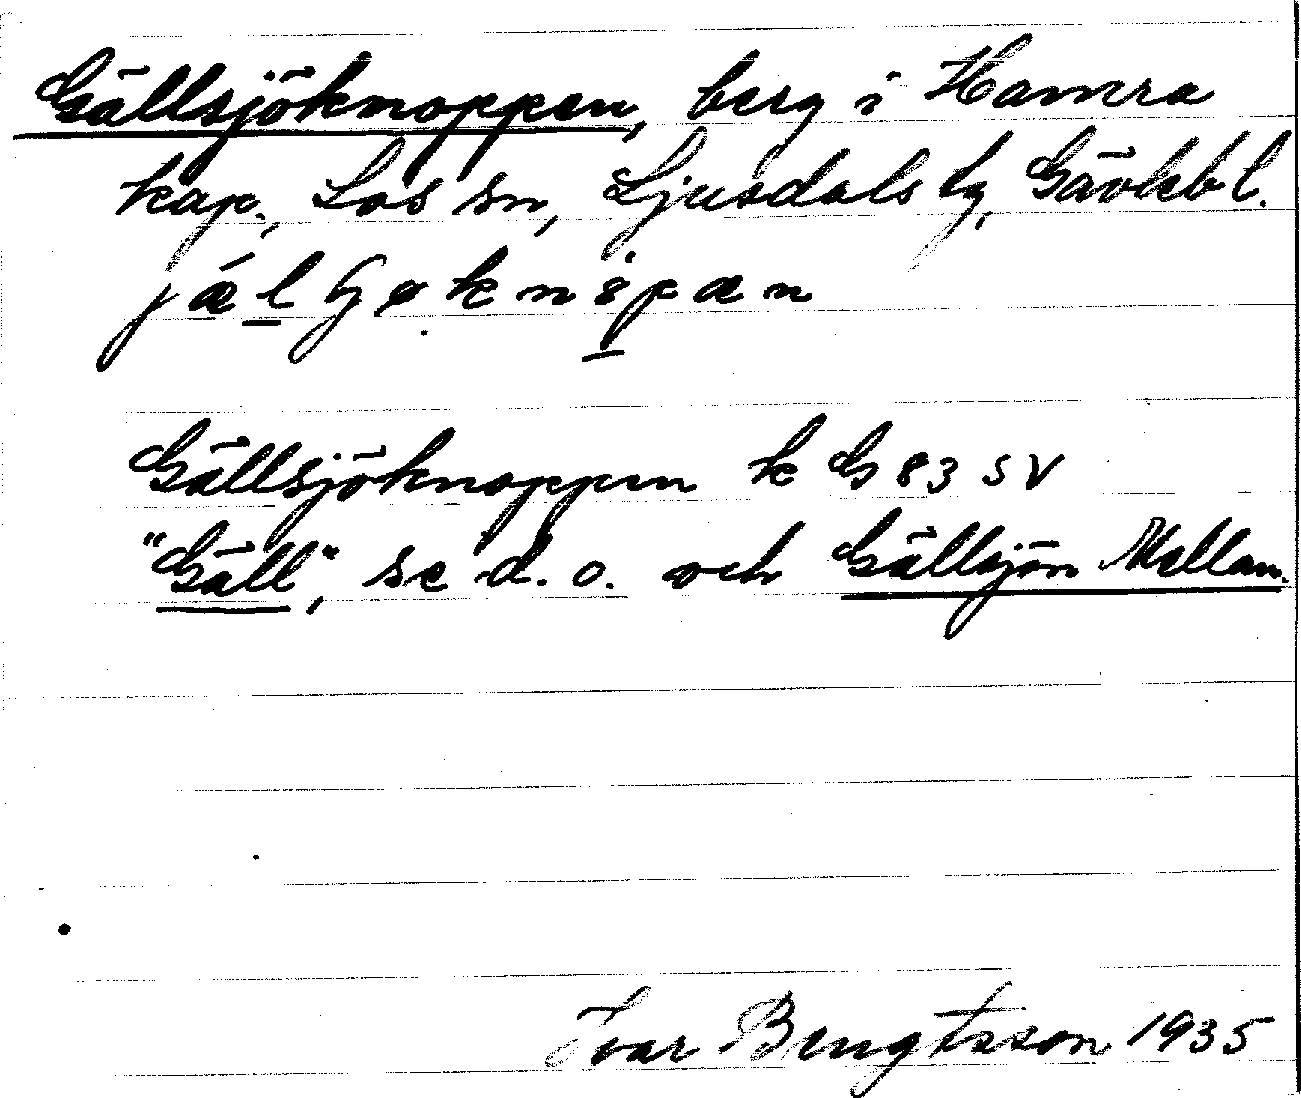 Gällsjöknoppen, berg i Hamra
kap., Los sn, Ljusdals tg, Gävlebl.
Gällsjöknoppen k G 83 SV
"Gäll", se d. o. och Gällsjön Mellan.
Ivar Bengtsson 1935